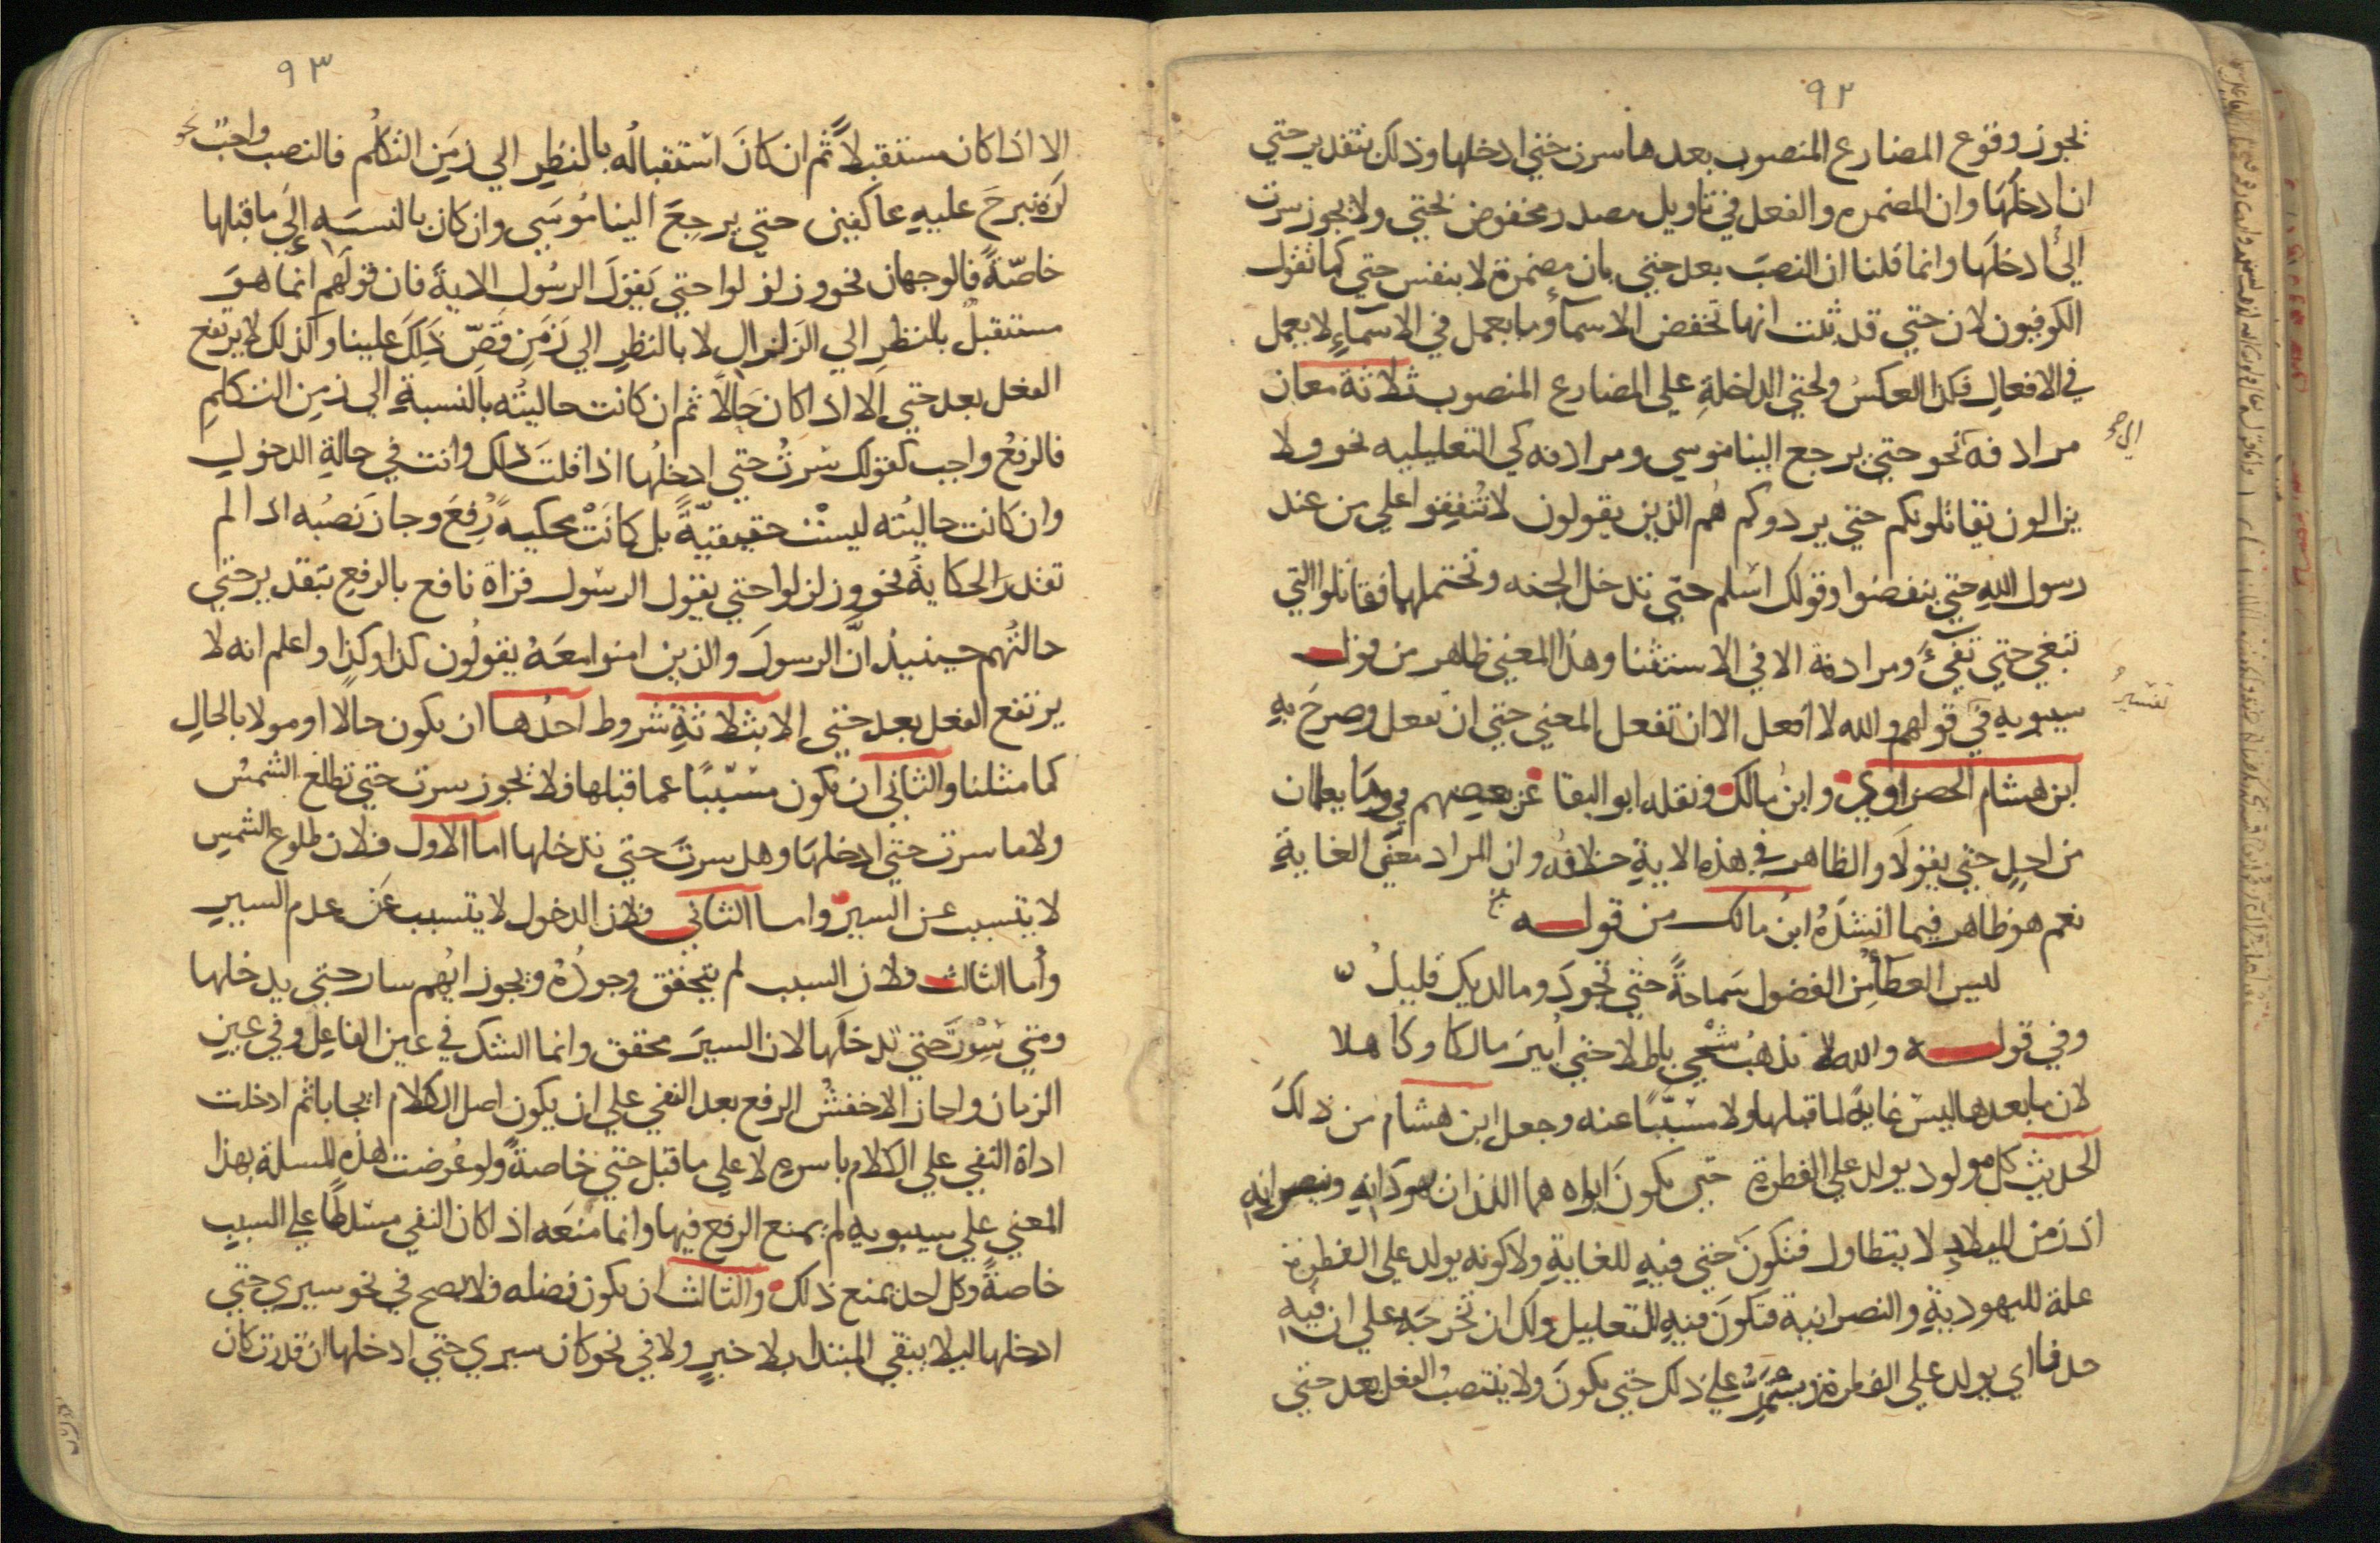 ٩٢
يجوز وقوع المضارع المنصوب بعدها سرت حتي ادخلها وذلك بتقدير حتي
ان ادخلها وان المضمره والفعل في تاويل مصدر مخفوض بحتي ولا يجوز سرت
الي ادخلها وانما قلنا ان النصب بعد حتي بان مضمرة لا بنفس حتي كما تقول
الكوفيون لان حتي قد ثبت انها تخفض الاسمآ وما يعمل في الاسمآء لا يعمل
في الافعال فكذا العكس ولحتي الداخلة علي المضارع المنصوب ثلاثة معان
مرادفة نحو حتي يرجع الينا موسي ومرادفه كي التعليليه نحو ولا
يزالون يقاتلونكم حتي يردوكم هم الذين يقولون لا تنفقوا علي من عند
رسول الله حتي ينفضوا وقولك اسلم حتي تدخل الجنه وتحتملهما فقاتلوا التي
تبغي حتي تفيء ومرادفة الا في الاستثنا وهذا المعني ظاهر من قول
سيبويه في قولهم والله لا افعل الا ان تفعل المعني حتي ان تفعل وصرح به
ابن هشام الحضراوي وابن مالك ونقله ابو البقا عن بعضهم في وما يعلمان
من احد حتي يقولا والظاهر في هذه الاية خلافه وان المراد معني الغاية
نعم هو ظاهر فيما انشده ابن مالك من قوله
ليس العطآ من الفضول سماحةً حتي تجود وما لديك قليل
وفي قوله والله لا يذهب شيخي باطلا حتي ابير مالكا وكاهلا
لان ما بعدها ليس غاية لما قبلها ولا مسببًا عنه وجعل ابن هشام من ذلك
الحديث كل مولود يولد علي الفطرة حتي يكون ابواه هما اللذان يهودانه وينصرانه
اذ زمن الميلاد لا يتطاول فتكون حتي فيه للغاية ولا كونه يولد علي الفطرة
علة لليهودية والنصرانية فتكون فيه للتعليل ولك ان تخرجه علي ان فيه
حذفا اي يولد علي الفطرة ويستمر علي ذلك حتي يكون ولا ينتصب الفعل بعد حتي
الي نحو
تفسير
٩٣
الا اذا كان مستقبلاً ثم ان كان استقباله بالنظر الي زمن التكلم فالنصب واجب نحو
لن نبرح عليه عاكفين حتي يرجع الينا موسي وان كان بالنسبه الي ما قبلها
خاصّةً فالوجهان نحو وزلزلوا حتي يقول الرسول الاية فان قولهم انما هو
مستقبل بالنظر الي الزلزال لا بالنظر الي زمن قصّ ذلك علينا وكذلك لا يرتفع
الفعل بعد حتي الا اذا كان حالاً ثم ان كانت حاليته بالنسبة الي زمن التكلم
فالرفع واجب كقولك سرت حتي ادخلها اذا قلت ذلك وانت في حالة الدخول
وان كانت حاليته ليست حقيقيّةً بل كانت محكيه رفع وجاز نصبه اذا لم
تقدر الحكاية نحو وزلزلوا حتي يقول الرسول قراة نافع بالرفع بتقدير حتي
حالتهم حينيذ ان الرسول والذين امنوا معه يقولون كذا وكذا واعلم انه لا
يرتفع الفعل بعد حتي الا بثلاثة شروط احدها ان يكون حالا او مولا بالحال
كما مثلنا والثاني ان يكون مسببًا عما قبلها فلا يجوز سرت حتي تطلع الشمس
ولا ما سرت حتي ادخلها وهل سرت حتي تدخلها اما الاول فلان طلوع الشمس
لا يتسبب عن السير واما الثاني فلان الدخول لا يتسبب عن عدم السير
وأما الثالث فلان السبب لم يتحقق وجوده ويجوز ايهم سار حتي يدخلها
ومتي سرت حتي تدخلها لان السير محقق وانما الشك في عين الفاعل وفي عين
الزمان واجاز الاخفش الرفع بعد النفي علي ان يكون اصل الكلام ايجابا ثم ادخلت
اداة النفي علي الكلام باسره لا علي ما قبل حتي خاصةً ولو عرضت هذه المسلة بهذا
المعني علي سيبويه لم يمنع الرفع فيها وانما منعه اذا كان النفي مسلطًا علي السبب
خاصةً وكل احد يمنع ذلك والثالث ان يكون فضله فلا يصح في نحو سيري حتي
ادخلها ليلا يبقي المبتدا بلا خبر ولا في نحو كان سيري حتي ادخلها ان قدرت كان